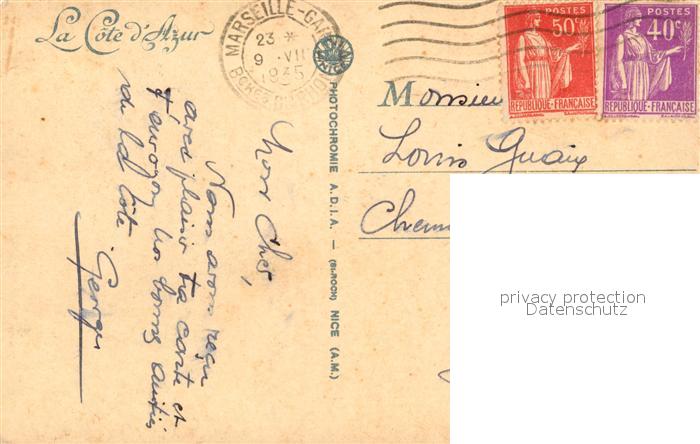 La Côte d'Azur
MARSEILLE-GARE
23 *
9 · VII
1935
BCHES DU RHONE
POSTES
50c
REPUBLIQUE-FRANÇAISE
POSTES
40c
REPUBLIQUE-FRANÇAISE
PHOTOCHROMIE A.D.I.A. — (St-ROCH) NICE (A.M.)
Mon Cher,
Nous avons reçu
avec plaisir ta carte et
t'envoyons nos bonnes amitiés
de la Côte.
Georges
Monsieur
Louis
privacy protection
Datenschutz